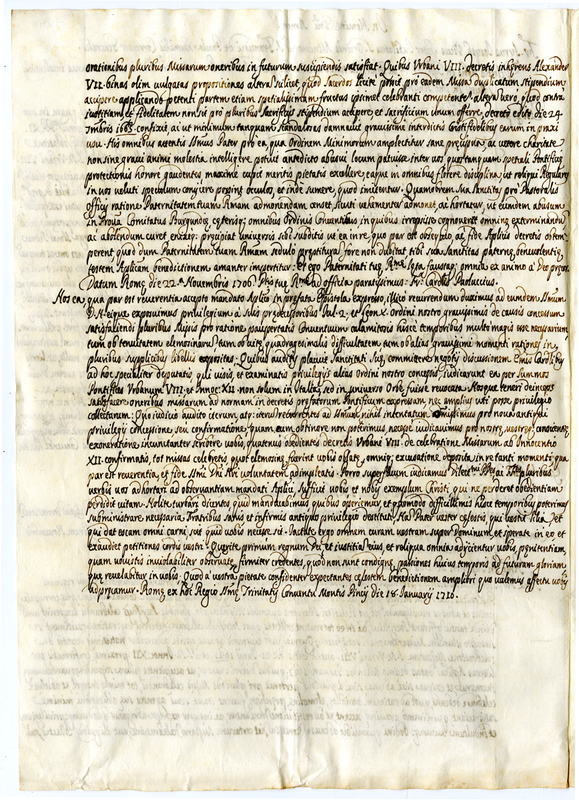 orationibus pluribus Missarum oneribus in futurum suscipiendis satisfiat. Quibus Urbani VIII. decretis inhærens Alexander
VII. binas olim vulgatas propositiones, alteram scilicet, quod Sacerdos licite possit pro eadem Missa duplicatum stipendium
accipere applicando petenti partem etiam specialissimam fructus ipsimet celebranti competentem, alteram vero, quod contra
iustitiam, et fidelitatem non sit pro pluribus Sacrificijs stipendium accipere, et sacrificium unum offerre, decreto edito die 24.
1665. confixit, ac ut minimum tanquam scandalosas damnavit gravissime interdicto Christifidelibus earum in praxi
usu. His omnibus attentis Smus Pater pro ea, qua Ordinem Minimorum amplectitur sane præcipua, ac vetere charitate
non sine gravi animi molestia intelligere potuit antedicto abusui locum patuisse inter vos, quos tanquam speciali Pontificis
protectionis honore gaudentes maxime cupit meritis pietatis excellere, eaque in omnibus florere disciplina, ut reliqui Regulares
in vos veluti speculum conijcere possint oculos, et inde sumere, quod imitentur. Quamobrem Sua Beatitudo pro Pastoralis
officij ratione Paternitatem tuam Rmam admonendam censet, sicuti vehementer admonet, ac hortatur, ut eumdem abusum
in Provincia Comitatus Burgundiæ, ceterisque omnibus Ordinis Conventibus in quibus irrepsisse cognoverit omnino exterminandum
ac abolendum curet, eneque præcipiat universis sibi subditis ut ea in re, quo par est obsequio, ac fide Aplicis decretis obtem-
perent quod dum Paternitatem tuam Rmam sedulo præstituram fore non dubitat tibi sua Sanctitas paternæ benevolentiæ
testem Aplicam benedictionem amanter impertitur: et ego Paternitati tuæ Rmæ læta, faustaque omnia ex animo a Deo precor.
Datum Romæ die 22. Novembris 1706. Ptis tuæ Rmæ ad officia paratissimus. Fr. Carolus Paulucius.
Nos ea, qua par est reverentia accepto mandato Aplico in præfata Epistola expresso, illico recurrendum duximus ad eumdem Smum
D. N. eique exposuimus privilegium a suis prædecessoribus Jul. 2. et Leon. X. ordini nostro gravissimis de causis concessum
satisfaciendi pluribus Missis pro ratione paupertatis Conventuum calamitosis hisce temporibus multo magis usu necessarium,
tum ob tenuitatem elemosinarum, tum ob vitæ quadragesimalis difficultatem, tum ob alias gravissimi momenti rationes in
pluribus supplicibus libellis expositas. Quibus auditis placuit Sanctitati Suæ committere negotij discussionem Emis Cardlibus
ad hoc specialiter deputatis, qui visis, et examinatis privilegijs alias ordini nostro concessis, iudicarunt ea per Summos
Pontifices Urbanum VIII. et Innoc. XII. non solum in Italia, sed in universo Orbe fuisse revocata. Nosque teneri deinceps
satisfacere oneribus missarum ad normam in decretis præfatorum Pontificum expressam, nec amplius uti posse privilegio
collectarum. Quo iudicio audito iterum, atque iterum recurrentes ad Smum, nihil intentatum omisimus pro nova antiqui
privilegij concessione, seu confirmatione, quam cum obtinere non potuerimus, necesse iudicavimus pro nostræ, vestræque conscientiæ
exoneratione incunctanter scribere vobis, quatenus obedientes decretis Urbani VIII. de celebratione Missarum ab Innocentio
XII. confirmatis, tot missas celebretis quot elemosinæ fuerint vobis oblatæ, omnique excusatione deposita in re tanti momenti qua
par est reverentia, et fide Smi Dni Nri voluntatem adimpleatis. Porro superfluum iudicamus Dilectmi Ptres, ac Fres pluribus
verbis vos adhortari ad observantiam mandati Aplici, sufficit vobis et nobis exemplum Christi, qui ne perderet obedientiam
perdidit vitam. Nolite turbari dicentes quid manducabimus, quibus operiemur, et quomodo difficillimis hisce temporibus poterimus
subministrare necessaria Fratribus sanis et infirmis antiquo privilegio destituti. Hæc Pater vester cœlestis, qui vestit lilia, et
qui dat escam omni carni scit quid vobis necesse sit. Iactate ergo omnem curam vestram super Dominum, et sperate in eo, et
exaudiet petitiones cordis vestri. Quærite primum regnum Dei, et iustitiam eius, et reliqua omnia adijcientur vobis, pœnitentiam,
quam vovistis inviolabiliter observate, firmiter credentes, quod non sunt condignæ passiones huius temporis ad futuram gloriam
quæ revelabitur in vobis. Quod a vestra pietate confidenter expectantes cœlestem benedictionem ampliori quo valemus affectu vobis
adprecamur. Romæ ex hoc Regio Smæ Trinitatis Conventu Montis Pincij die 18. Januarij 1716.